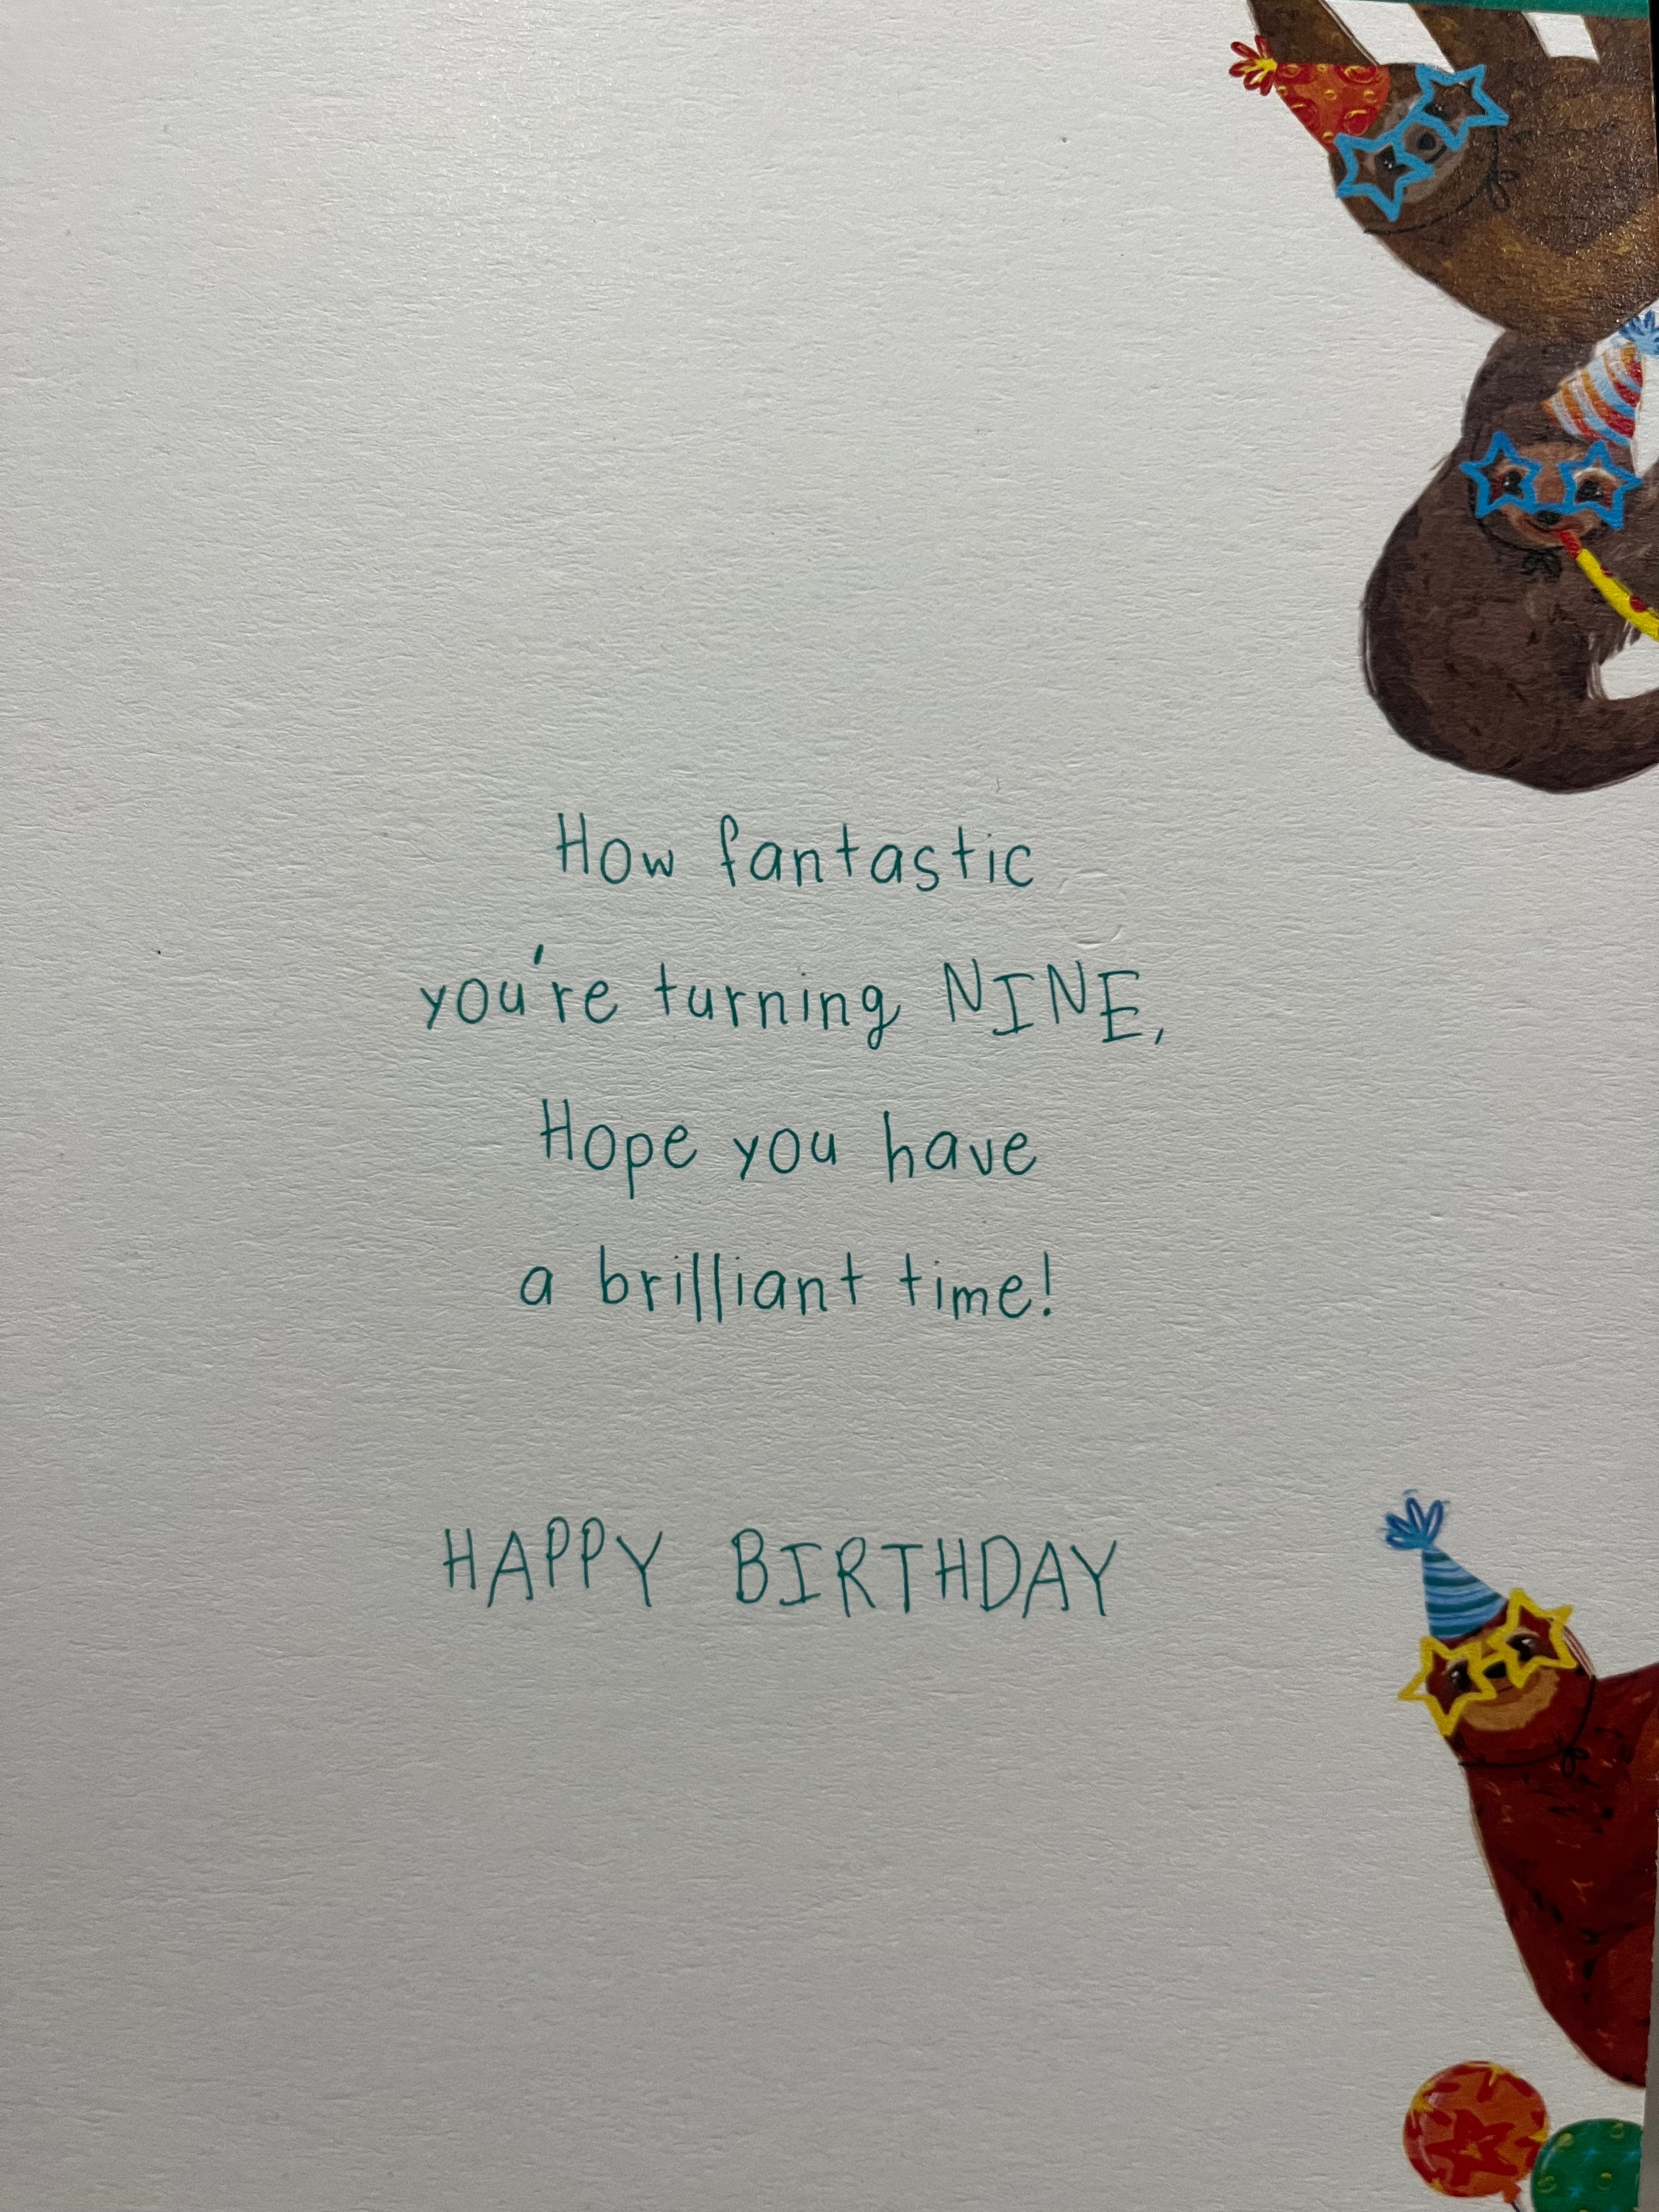 How fantastic
you're turning NINE,
Hope you have
a brilliant time!
HAPPY BIRTHDAY